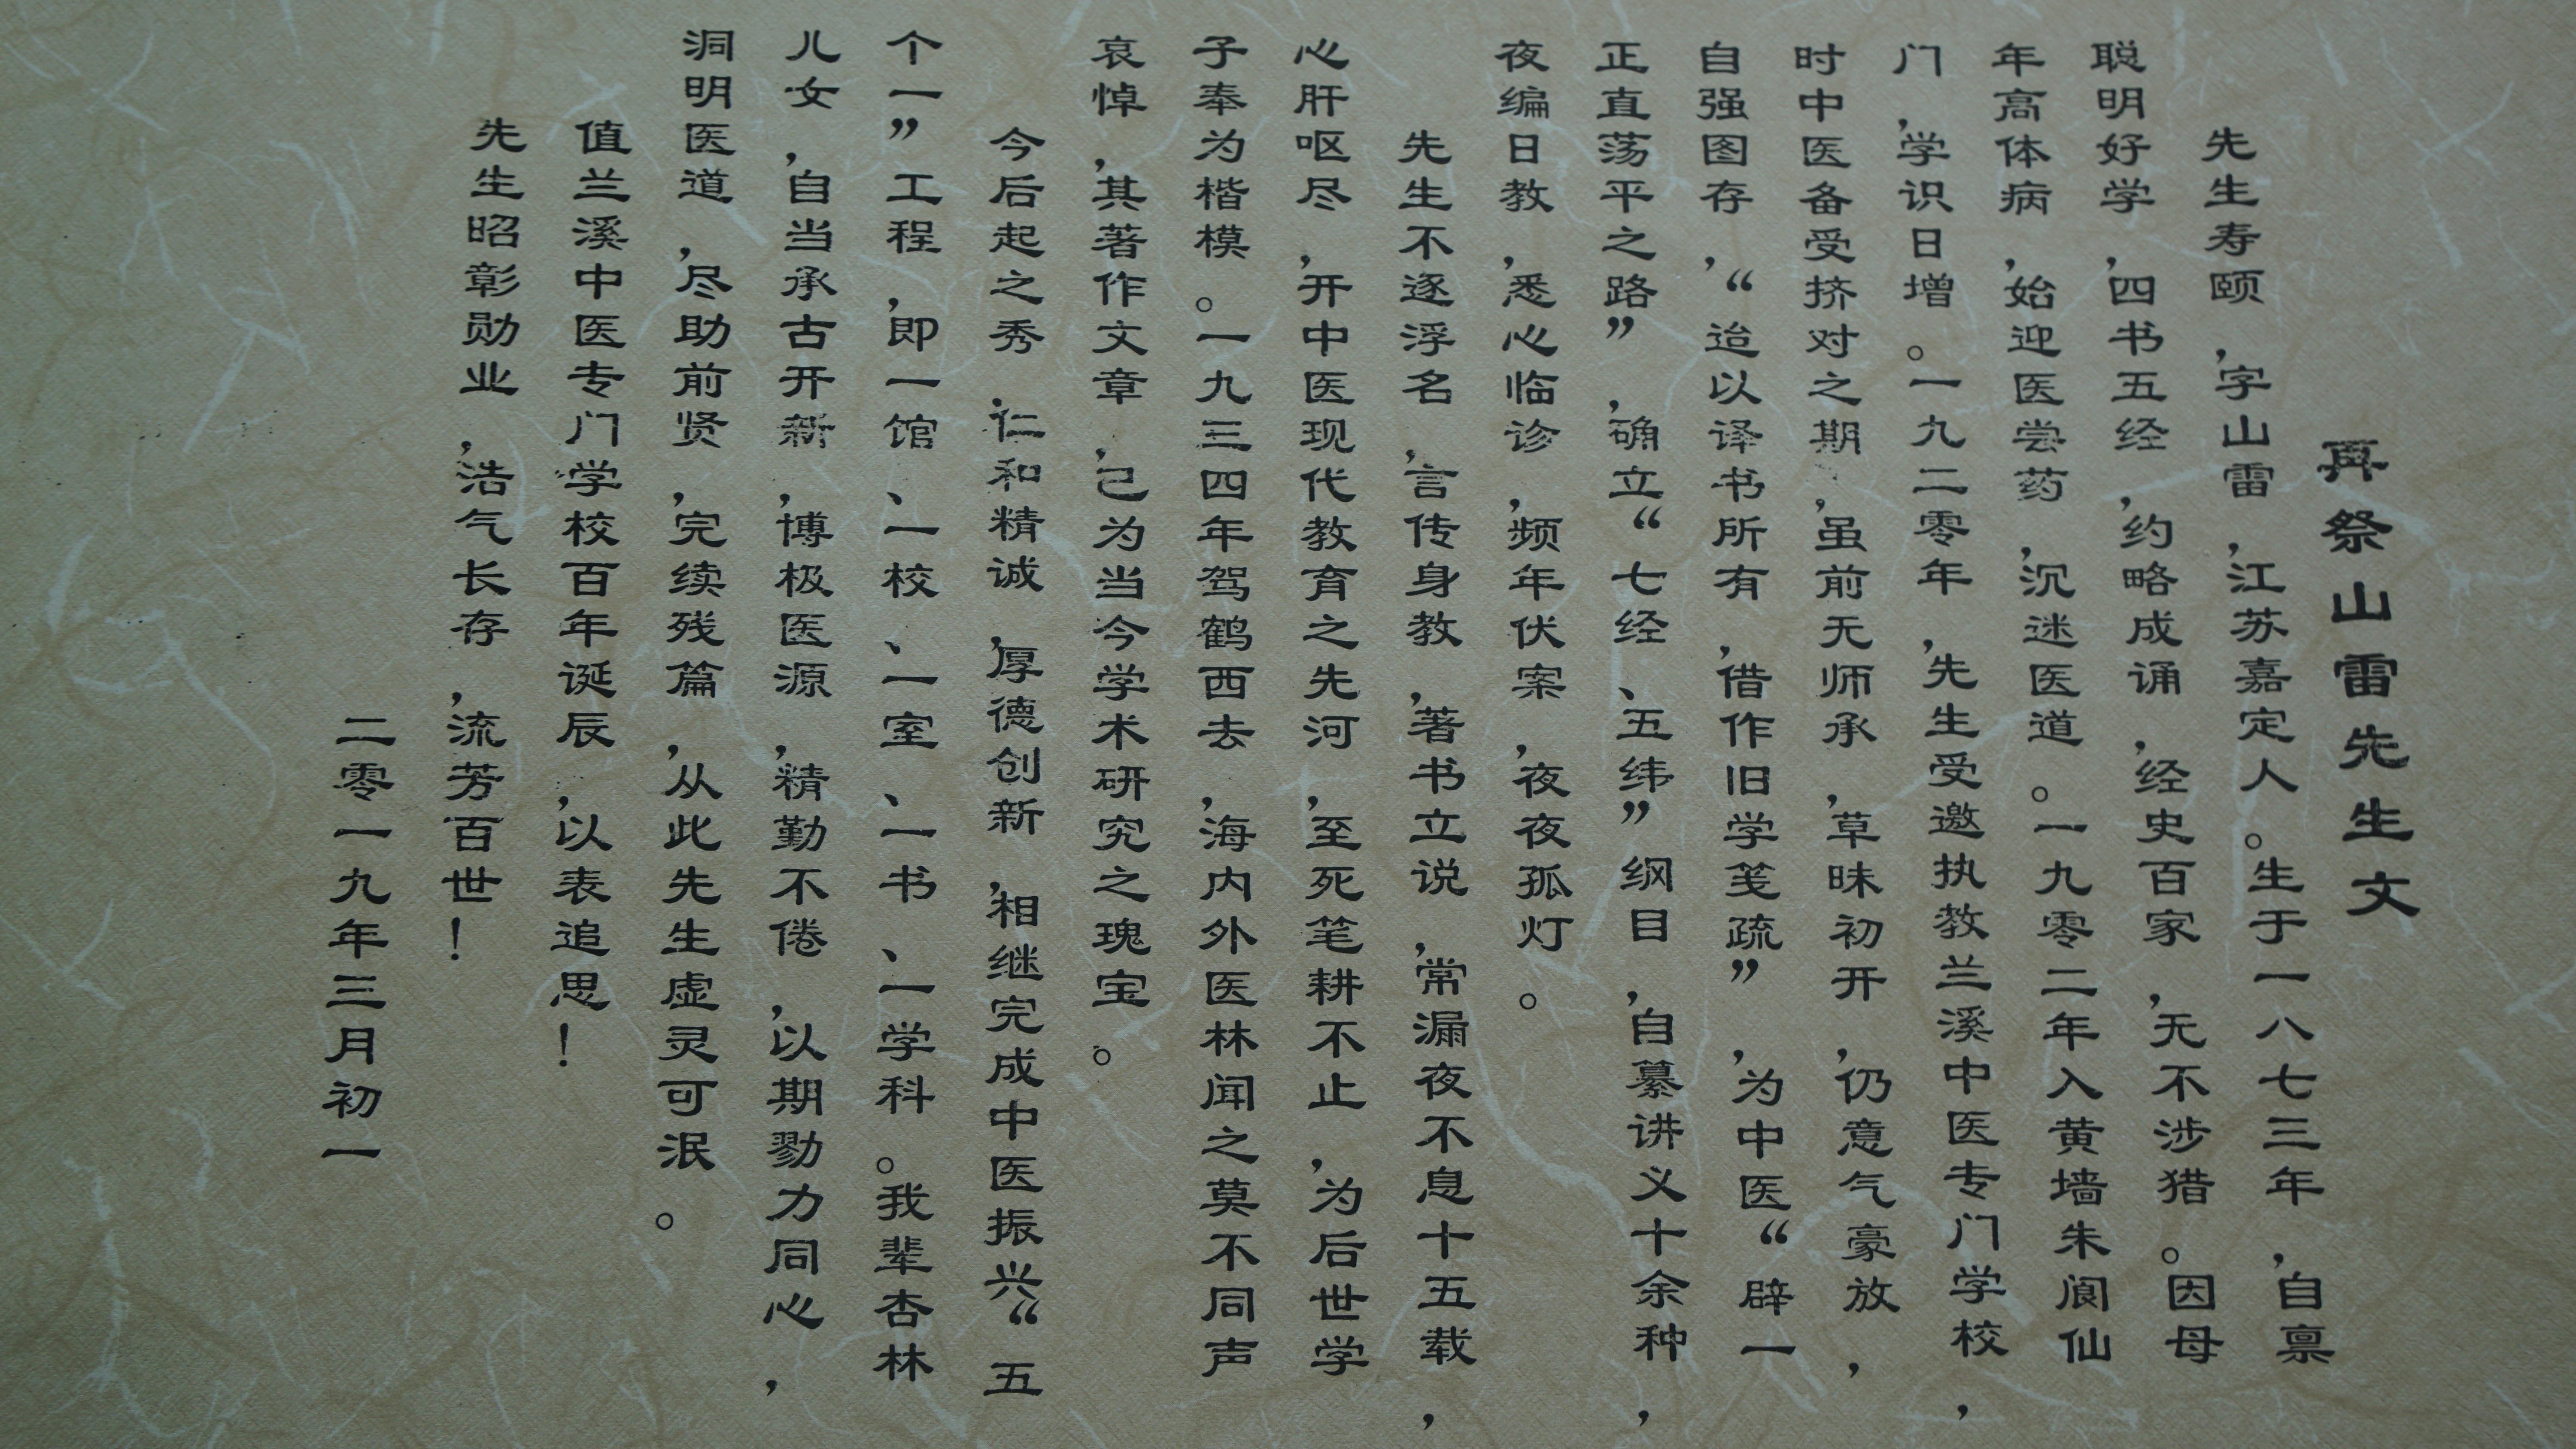 再祭山雷先生文
先生寿颐，字山雷，江苏嘉定人。生于一八七三年，自禀
聪明好学，四书五经，约略成诵，经史百家，无不涉猎。因母
年高体病，始迎医尝药，沉迷医道。一九零二年入黄墙朱阆仙
门，学识日增。一九二零年，先生受邀执教兰溪中医专门学校，
时中医备受挤对之期，虽前无师承，草昧初开，仍意气豪放，
自强图存，“迨以译书所有，借作旧学笺疏”，为中医“辟一
正直荡平之路”，确立“七经、五纬”纲目，自纂讲义十余种，
夜编日教，悉心临诊，频年伏案，夜夜孤灯。
先生不逐浮名，言传身教，著书立说，常漏夜不息十五载，
心肝呕尽，开中医现代教育之先河，至死笔耕不止，为后世学
子奉为楷模。一九三四年驾鹤西去，海内外医林闻之莫不同声
哀悼，其著作文章，己为当今学术研究之瑰宝。
今后起之秀，仁和精诚，厚德创新，相继完成中医振兴“五
个一”工程，即一馆、一校、一室、一书、一学科。我辈杏林
儿女，自当承古开新，博极医源，精勤不倦，以期勠力同心，
洞明医道，尽助前贤，完续残篇，从此先生虚灵可泯。
值兰溪中医专门学校百年诞辰，以表追思！
先生昭彰勋业，浩气长存，流芳百世！
二零一九年三月初一